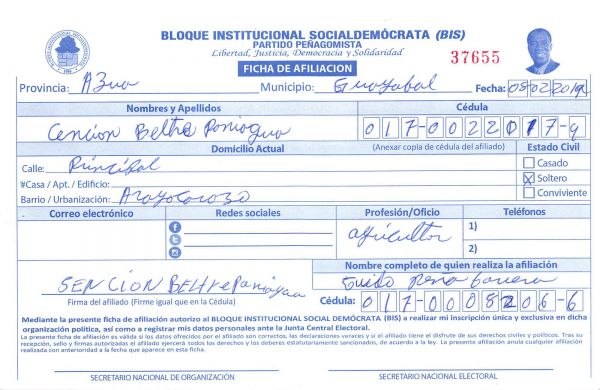 BLOQUE INSTITUCIONAL SOCIALDEMÓCRATA (BIS)
PARTIDO PEÑAGOMISTA
Libertad, Justicia, Democracia y Solidaridad
37655
FICHA DE AFILIACION
Provincia: Azua Municipio: Guayabal Fecha: 08/02/2019
Nombres y Apellidos Cédula
Cencion Beltre Paniagua 017-0022017-9
Domicilio Actual (Anexar copia de cédula del afiliado) Estado Civil
Calle: Principal Casado
#Casa / Apt. / Edificio: X Soltero
Barrio / Urbanización: Arroyocorozo Conviviente
Correo electrónico Redes sociales Profesión/Oficio Teléfonos
agricultor 1)
2)
Nombre completo de quien realiza la afiliación
SENCION BELTrePaniagua Guido Peña
Firma del afiliado (Firme igual que en la Cédula) Cédula: 017-0008206-6
Mediante la presente ficha de afiliación autorizo al BLOQUE INSTITUCIONAL SOCIAL DEMÓCRATA (BIS) a realizar mi inscripción única y exclusiva en dicha
organización política, así como a registrar mis datos personales ante la Junta Central Electoral.
La presente ficha de afiliación es válida si los datos ofrecidos por el afiliado son correctos, las declaraciones veraces y si el afiliado tiene el disfrute de sus derechos civiles y políticos. Tras su
recepción, sello y firmas autorizadas el afiliado ejercerá todos los derechos y los deberes estatutariamente sancionados, de acuerdo a la ley. La presente afiliación anula cualquier afiliación
realizada con anterioridad a la fecha que aparece en esta ficha.
SECRETARIO NACIONAL DE ORGANIZACIÓN SECRETARIO NACIONAL ELECTORAL